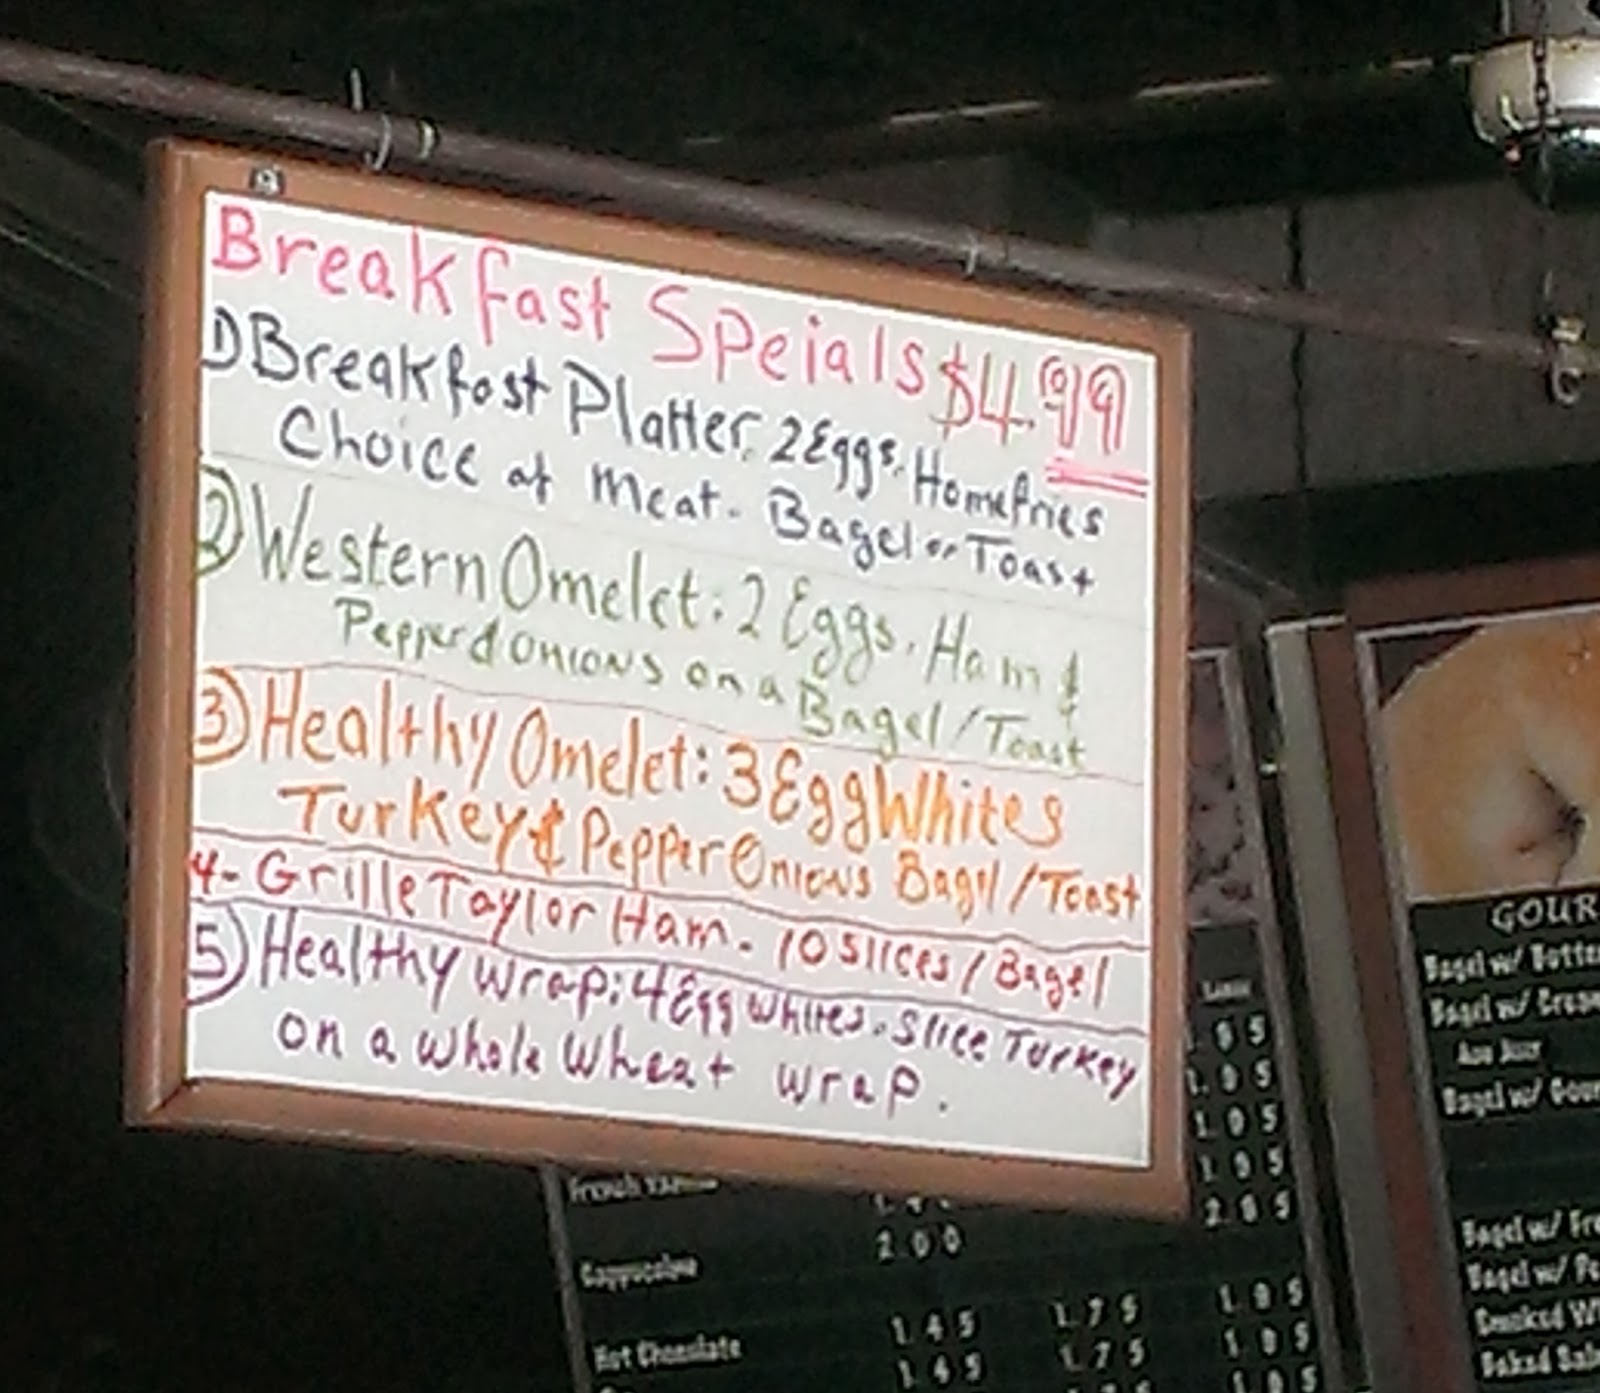 Breakfast Speials $4.99
1) Breakfast Platter. 2 Eggs. Homefries
Choice of Meat. Bagel or Toast
2) Western Omelet: 2 Eggs. Ham &
Pepper & Onions on a Bagel / Toast
3) Healthy Omelet: 3 Egg Whites
Turkey & Pepper Onions Bagel / Toast
4- Grille Taylor Ham. 10 Slices / Bagel
5) Healthy Wrap: 4 Egg Whites. Slice Turkey
on a whole wheat wrap.
French
2.00
Cappuccino
Hot Chocolate 1.45 1.75 1.95
1.45 1.75 1.95
1.95
1.95
1.95
2.95
GOUR
Bagel w/ Butte
Bagel w/ Crea
Bagel w/ Gou
Bagel w/ Fre
Bagel w/ Pe
Smoked W
Baked Sal